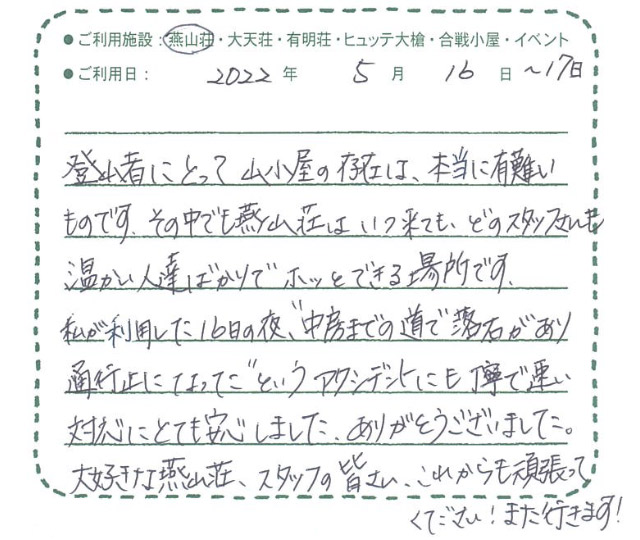 ● ご利用施設：燕山荘・大天荘・有明荘・ヒュッテ大槍・合戦小屋・イベント
● ご利用日： 2022 年 5 月 16 日 〜17日
登山者にとって山小屋の存在は、本当に有難い
ものです。その中でも燕山荘はいつ来ても、どのスタッフさんも
温かい人達ばかりでホッとできる場所です。
私が利用した16日の夜、"中房までの道で落石があり
通行止になってた"というアクシデントにも丁寧で速い
対応にとても安心しました。ありがとうございました。
大好きな燕山荘、スタッフの皆さん、これからも頑張って
ください！また行きます！